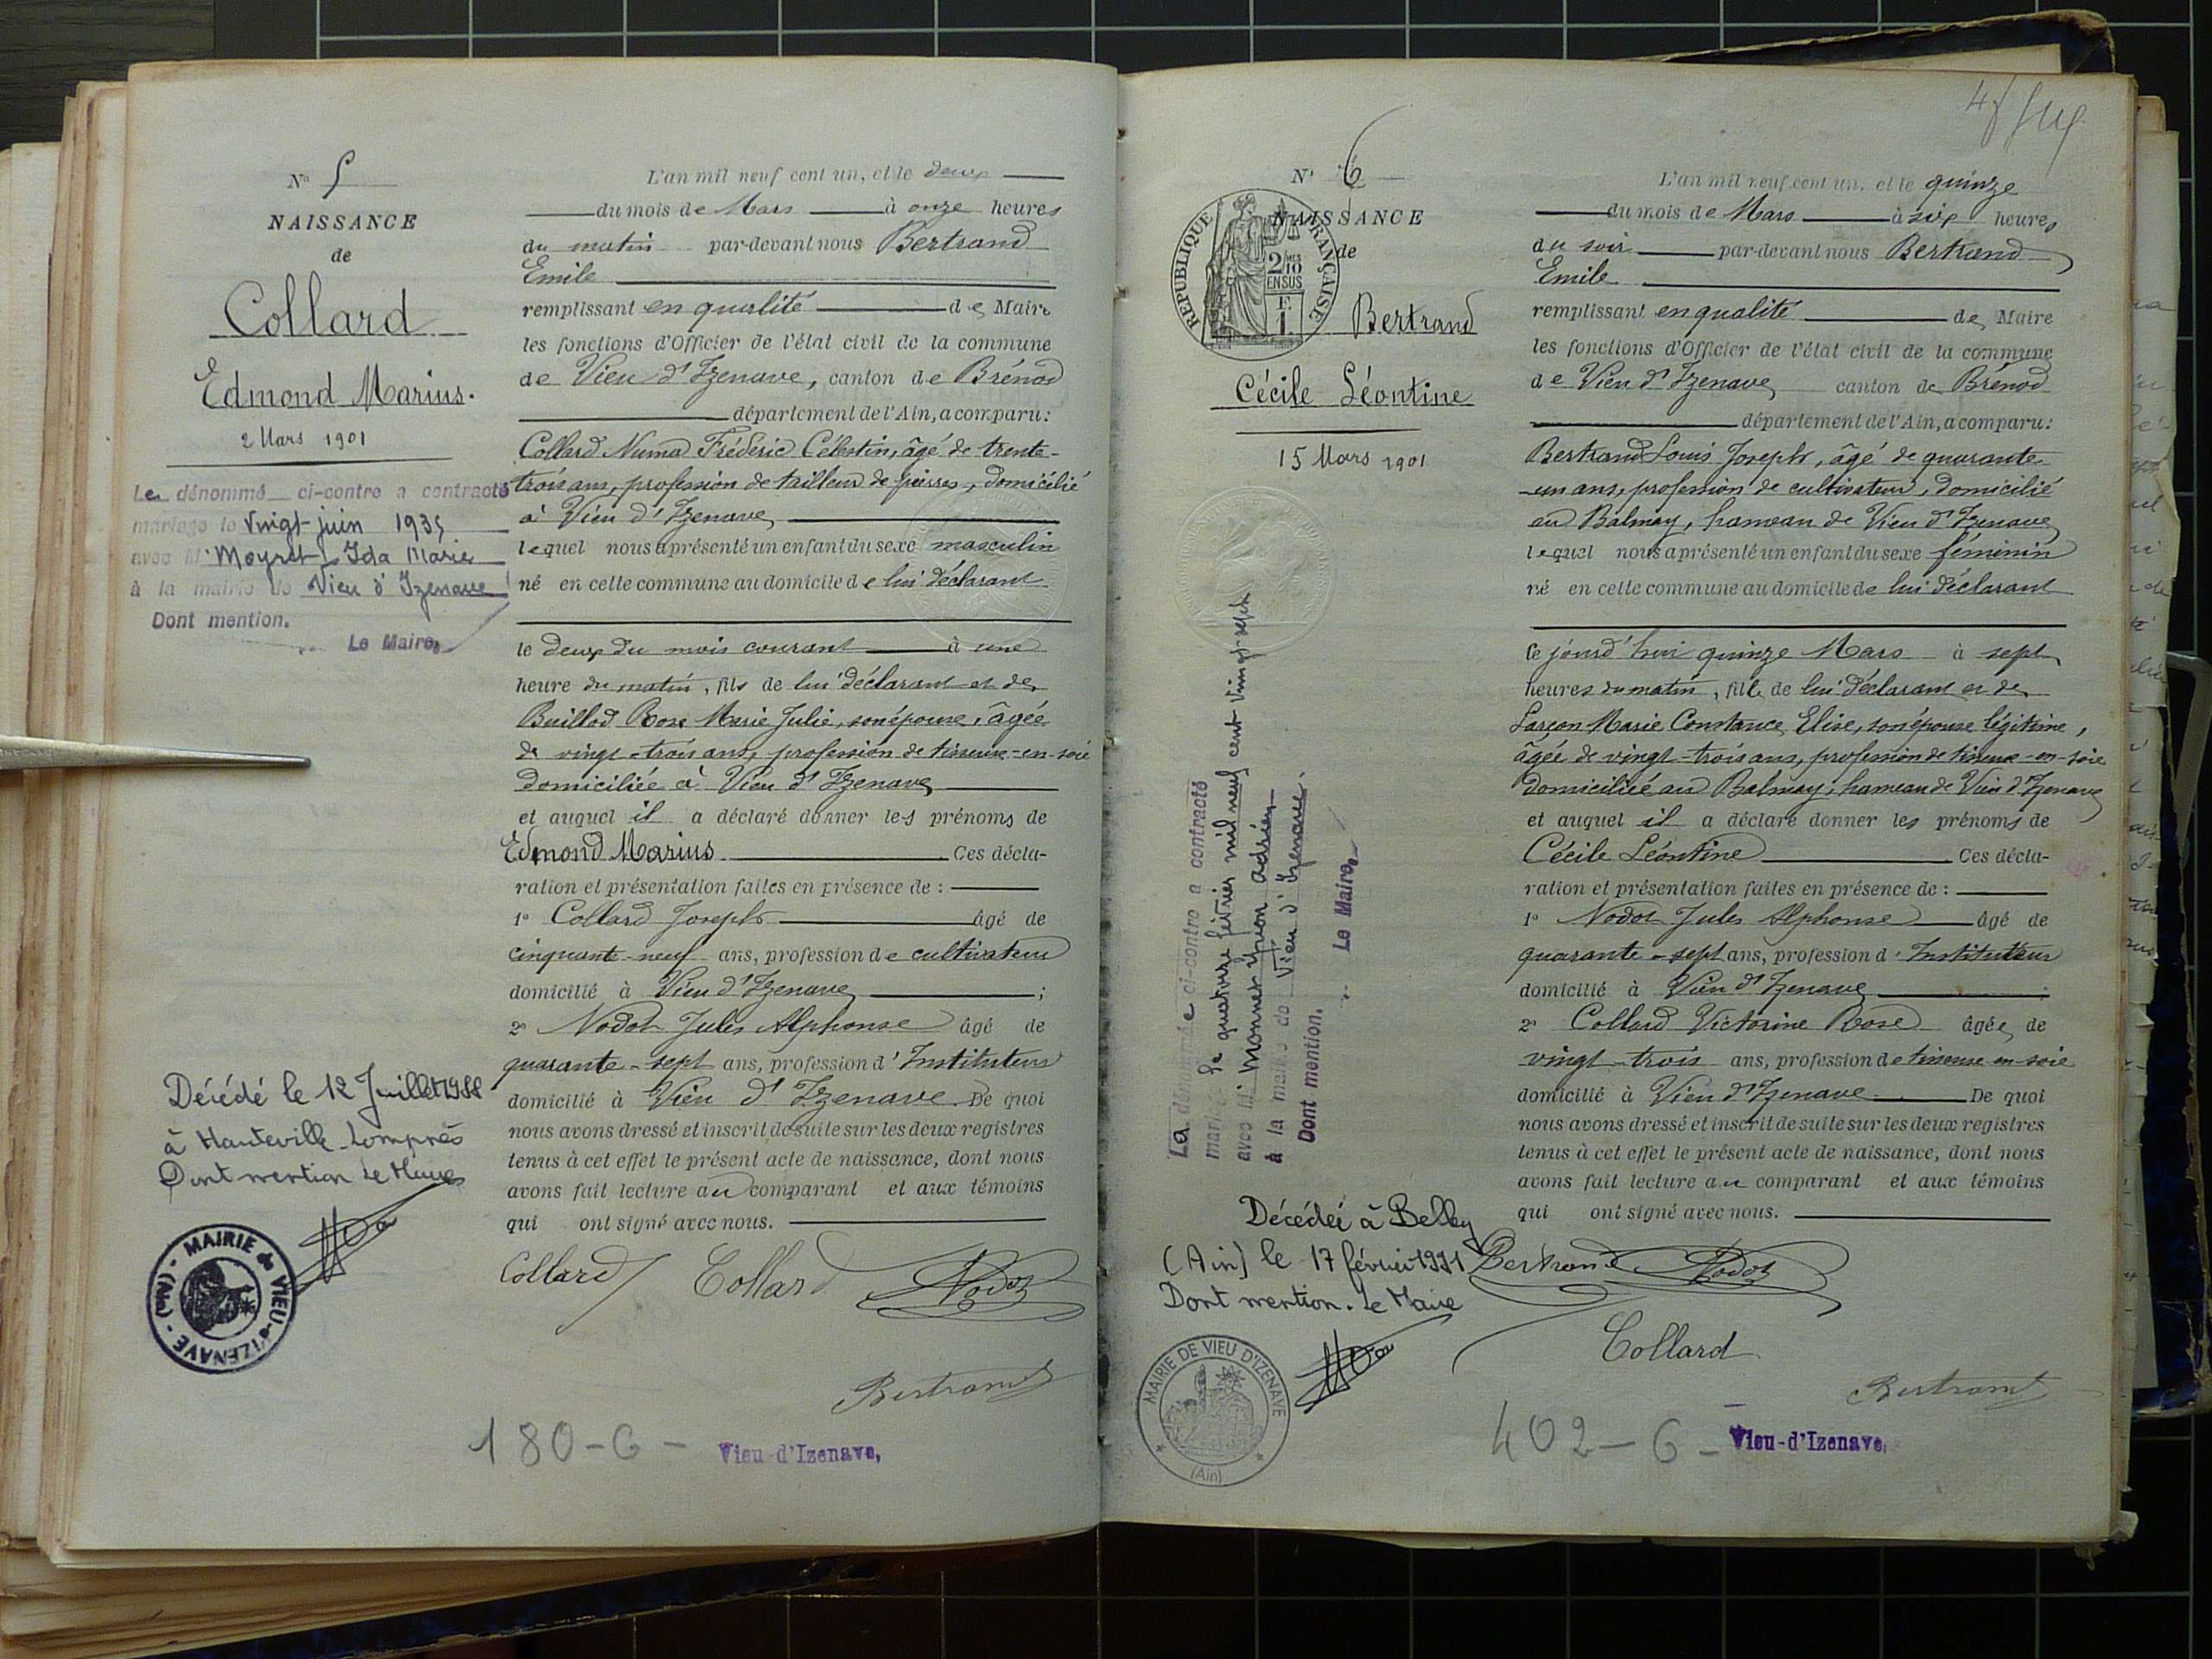 N° 5
NAISSANCE
de
Collard
Edmond Marius.
2 Mars 1901
Le dénommé ci-contre a contracté
mariage le vingt juin 1935
avec Mlle Moyret Ida Marie
à la mairie de Vieu d'Izenave
Dont mention.
Le Maire,
Décédé le 12 Juillet 1988
à Hauteville-Lompnès
Dont mention Le Maire
MAIRIE de VIEU-d'IZENAVE - (Ain) -
L'an mil neuf cent un, et le deux
du mois de Mars à onze heures
du matin par-devant nous Bertrand
Emile
remplissant en qualité de Maire
les fonctions d'Officier de l'état civil de la commune
de Vieu d'Izenave, canton de Brénod
département de l'Ain, a comparu:
Collard Numa Frédéric Célestin, âgé de trente-
trois ans, profession de tailleur de pierres, domicilié
à Vieu d'Izenave,
lequel nous a présenté un enfant du sexe masculin
né en cette commune au domicile de lui déclarant
le deux du mois courant à une
heure du matin, fils de lui déclarant et de
Buillod Rose Marie Julie, son épouse, âgée
de vingt-trois ans, profession de tisseuse-en-soie
domiciliée à Vieu d'Izenave
et auquel il a déclaré donner les prénoms de
Edmond Marius Ces décla-
ration et présentation faites en présence de :
1° Collard Joseph âgé de
cinquante-neuf ans, profession de cultivateur
domicilié à Vieu d'Izenave ;
2° Nodot Jules Alphonse âgé de
quarante-sept ans, profession d'Instituteur
domicilié à Vieu d'Izenave. De quoi
nous avons dressé et inscrit de suite sur les deux registres
tenus à cet effet le présent acte de naissance, dont nous
avons fait lecture au comparant et aux témoins
qui ont signé avec nous.
Collard Collard Nodot
Bertrand
180-6- Vieu-d'Izenave,
N° 6
NAISSANCE
de
REPUBLIQUE FRANÇAISE
2/10
EN SUS
F.
1
Bertrand
Cécile Léontine
15 Mars 1901
La dénommée ci-contre a contracté
mariage le quatorze février mil neuf cent vingt-sept
avec M. Monnet Yvon Adrien
à la mairie de Vieu d'Izenave.
Dont mention.
Le Maire,
Décédée à Belley
(Ain) le 17 février 1991
Dont mention. Le Maire
MAIRIE DE VIEU D'IZENAVE (Ain)
L'an mil neuf cent un, et le quinze
du mois de Mars à six heures
du soir par-devant nous Bertrand
Emile
remplissant en qualité de Maire
les fonctions d'Officier de l'état civil de la commune
de Vieu d'Izenave canton de Brénod
département de l'Ain, a comparu:
Bertrand Louis Joseph, âgé de quarante
-un ans, profession de cultivateur, domicilié
au Balmay, hameau de Vieu d'Izenave
lequel nous a présenté un enfant du sexe féminin
né en cette commune au domicile de lui déclarant
le jourd'hui quinze Mars à sept
heures du matin, fille de lui déclarant et de
Larçon Marie Constance Elise, son épouse légitime,
âgée de vingt-trois ans, profession de tisseuse-en-soie
domiciliée au Balmay, hameau de Vieu d'Izenave
et auquel il a déclaré donner les prénoms de
Cécile Léontine Ces décla-
ration et présentation faites en présence de :
1° Nodot Jules Alphonse âgé de
quarante-sept ans, profession d'Instituteur
domicilié à Vieu d'Izenave
2° Collard Victorine Rose âgée de
vingt-trois ans, profession de tisseuse en-soie
domicilié à Vieu d'Izenave. De quoi
nous avons dressé et inscrit de suite sur les deux registres
tenus à cet effet le présent acte de naissance, dont nous
avons fait lecture au comparant et aux témoins
qui ont signé avec nous.
Bertrand Nodot
Collard
Bertrand
402-6- Vieu-d'Izenave,